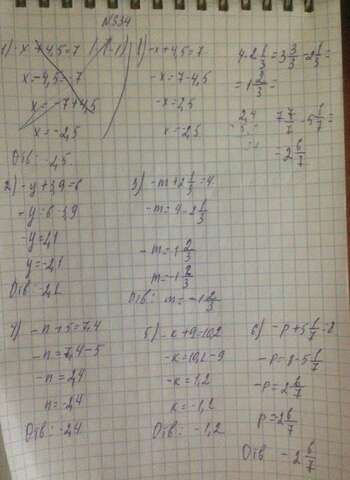 №334
1) -x+4,5=7 | (-1)
x-4,5=-7
x=-7+4,5
x=-2,5
Отв: -2,5.
1) -x+4,5=7
-x=7-4,5
-x=2,5
x=-2,5
4-2 1/3=3 3/3-2 1/3=
=1 2/3=
7 7/7-5 1/7=
=2 6/7
2) -y+3,9=6
-y=6-3,9
-y=2,1
y=-2,1
Отв: -2,1
3) -m+2 1/3=4
-m=4-2 1/3
-m=1 2/3
m=-1 2/3
Отв: m=-1 2/3
4) -n+5=7,4
-n=7,4-5
-n=2,4
n=-2,4
Отв: -2,4
5) -k+9=10,2
-k=10,2-9
-k=1,2
k=-1,2
Отв: -1,2
6) -p+5 1/7=8
-p=8-5 1/7
-p=2 6/7
p=2 6/7
Отв -2 6/7